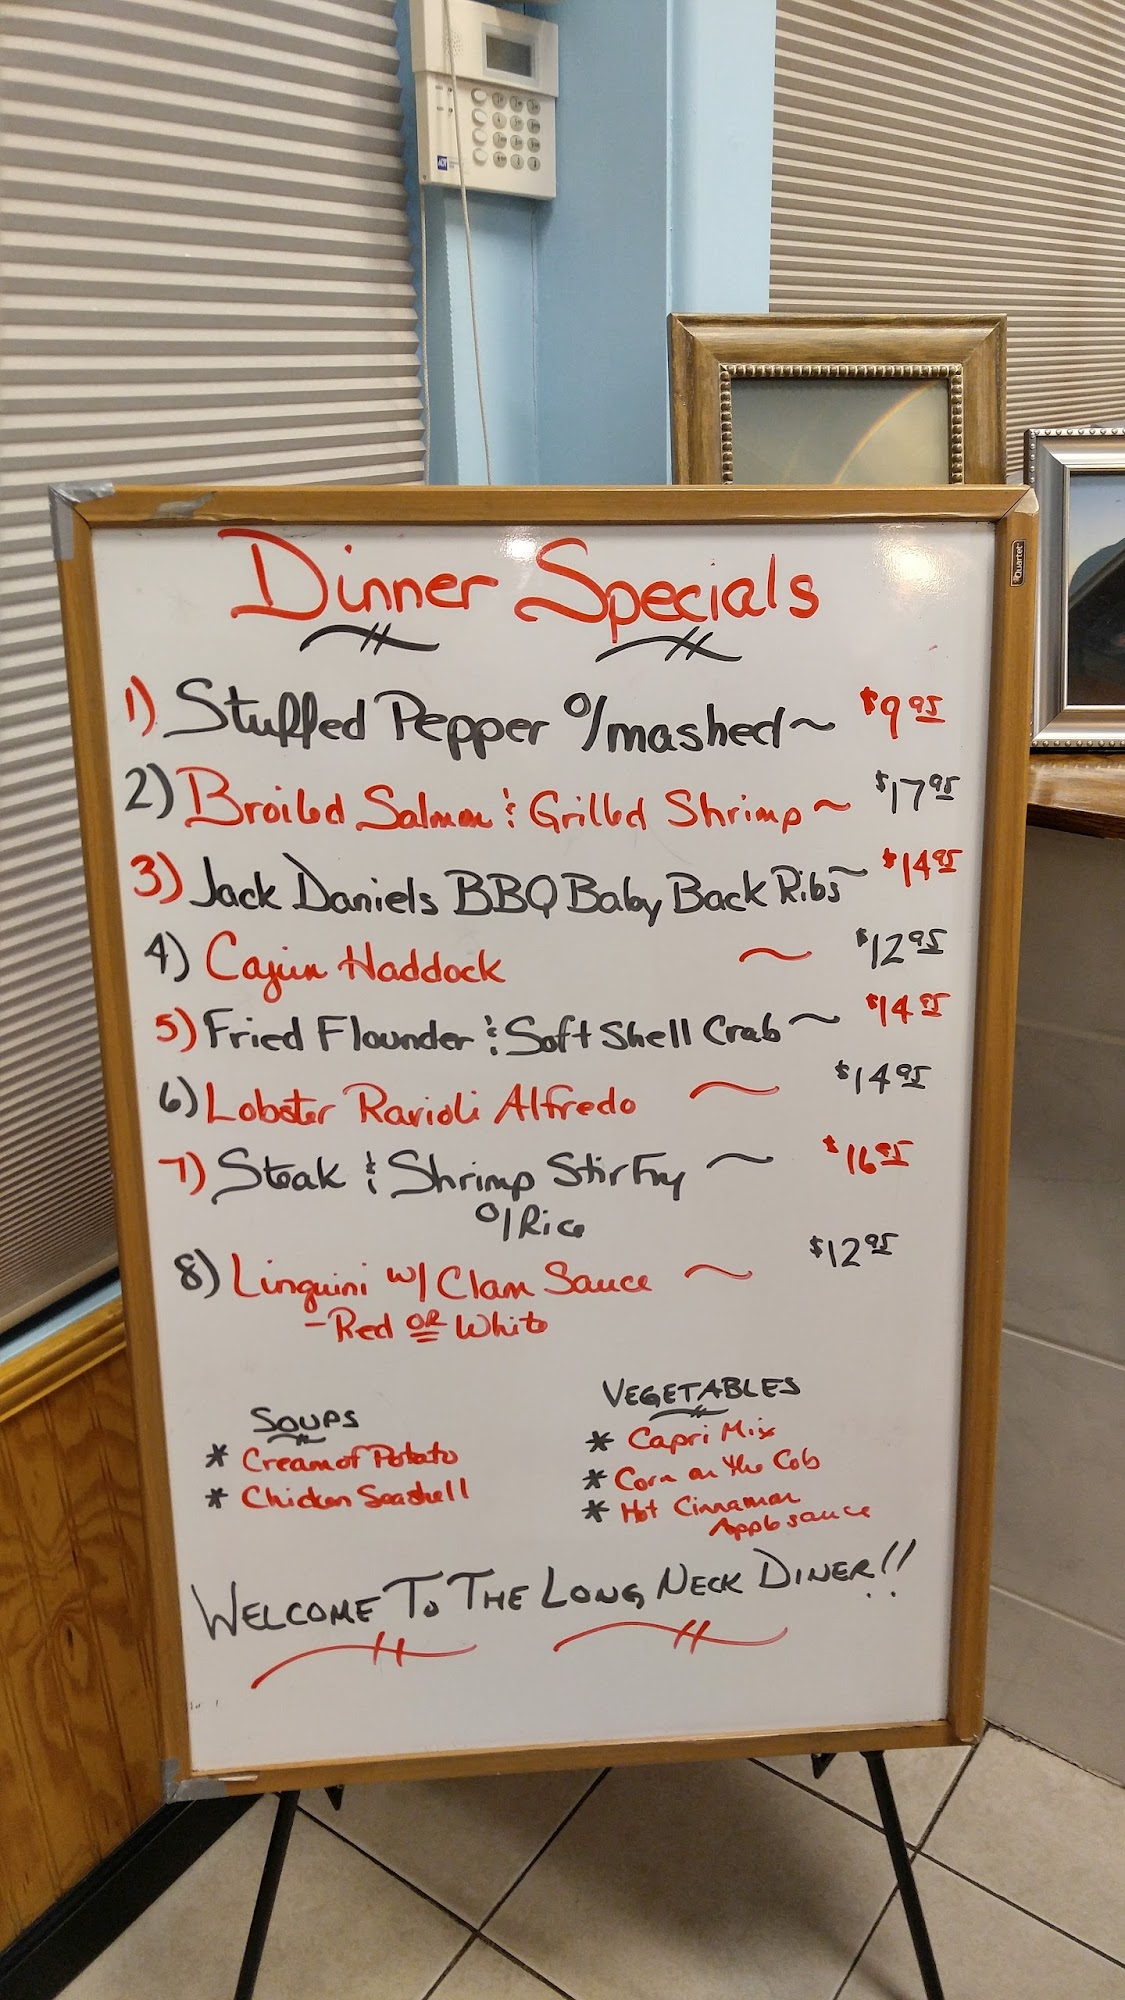 ADT
Quartet
Dinner Specials
1) Stuffed Pepper o/mashed ~ $9 95
2) Broiled Salmon & Grilled Shrimp ~ $17 95
3) Jack Daniels BBQ Baby Back Ribs ~ $14 95
4) Cajun Haddock ~ $12 95
5) Fried Flounder & Soft Shell Crab ~ $14 95
6) Lobster Ravioli Alfredo ~ $14 95
7) Steak & Shrimp Stir Fry ~ $16 95
o/Rice
8) Linguini w/ Clam Sauce ~ $12 95
- Red OR White
SOUPS
* Cream of Potato
* Chicken Seashell
VEGETABLES
* Capri Mix
* Corn on the Cob
* Hot Cinnamon
Applesauce
WELCOME TO THE LONG NECK DINER!!